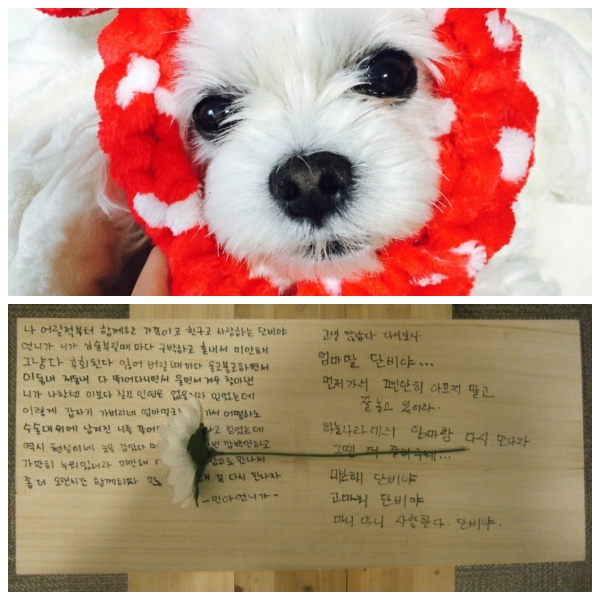 나 어릴적부터 함께한 가족이고 친구고 사랑하는 단비야
언니가 니가 심술부릴때 마다 구박하고 혼내서 미안해
그냥다 후회된다 잃어 버릴 때마다 울고불고하면서
이동네 저동네 다 뛰어다니면서 울면서 겨우 찾아낸
니가 나한텐 이보다 질긴 인연은 없을거라 믿었는데
이렇게 갑자기 가버리네 엄마 가서 어떡하노
수술대 위에 남겨진 니를 하고 믿었는데
역시 현실이네 눈을 감았다 깜빡안하고
가만히 누워있더라 미안해 다 만나서
좀 더 오랜시간 함께하자 꼭 다시 만나자
-민아언니가-
고생 많았다 다시보자
엄마딸 단비야...
먼저가서 편안히 아프지 말고
잘 놀고 있어라.
하늘나라에서 엄마랑 다시 만나자
그땐 더
미안해 단비야
고마워 단비야
마니 마니 사랑한다. 단비야.